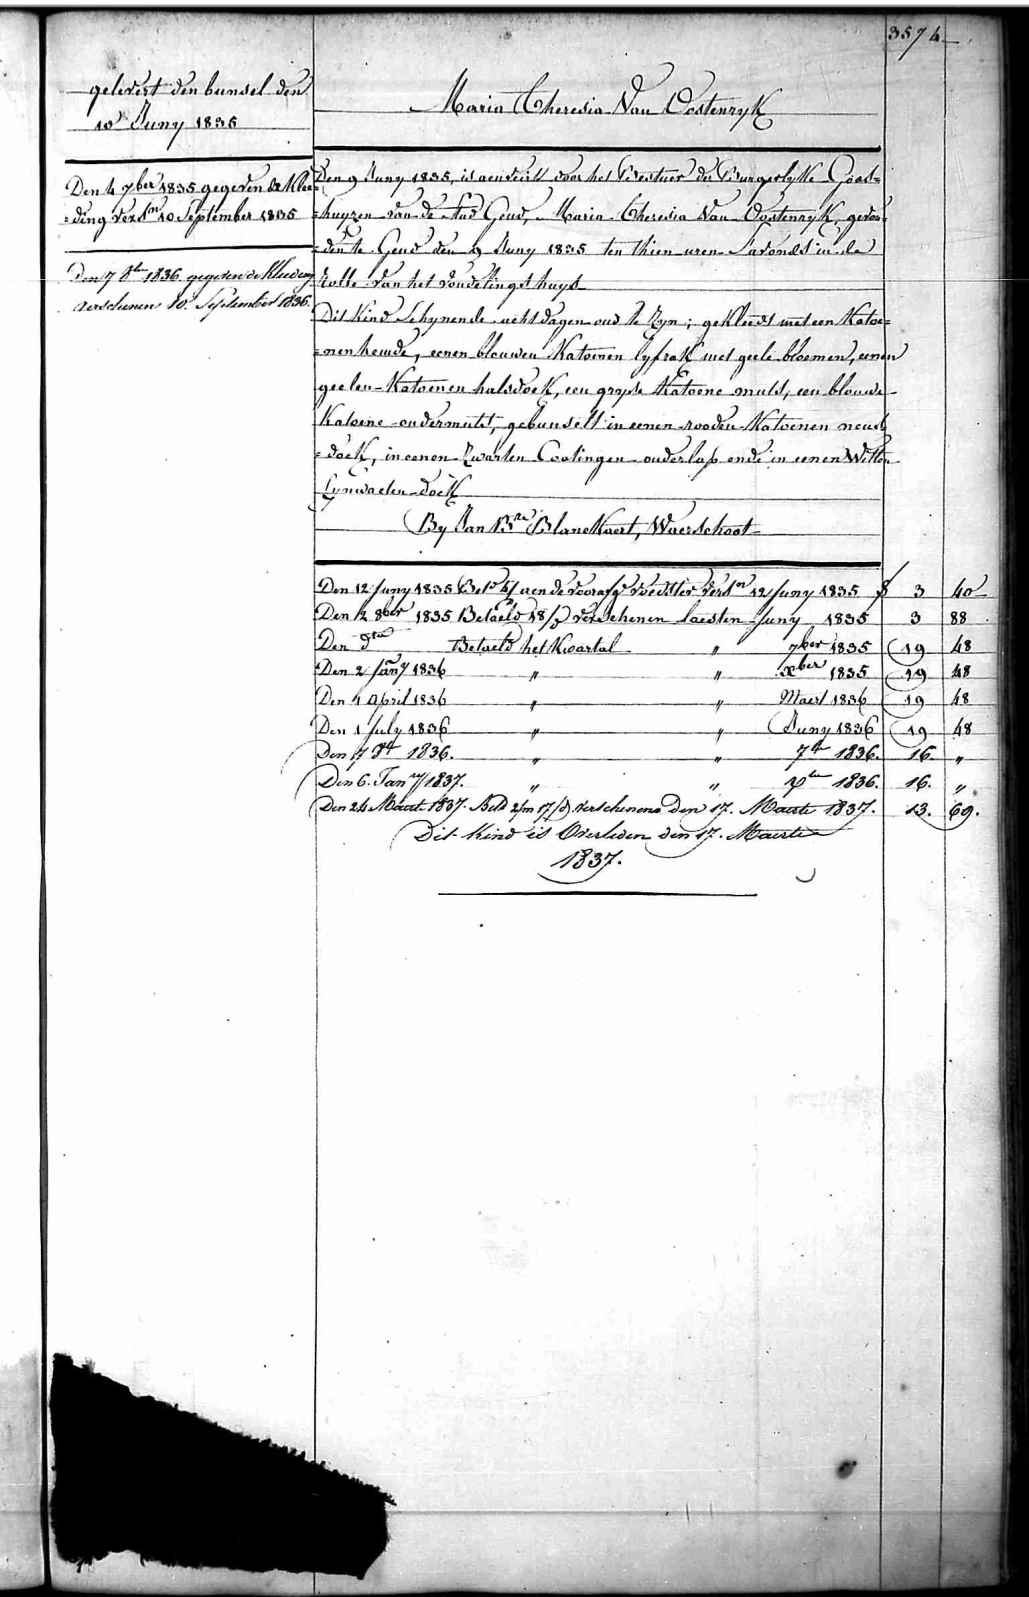 3574
gelevert den bunsel den
10 Juny 1835
Maria Theresia Van Oostenryk
Den 4 7ber 1835 gegeven de Klee=
=ding versn 10 September 1835
Den 7 8br 1836 gegeven de Kleeding
verschenen 10. September 1836.
Den 9 Juny 1835, is aenveirt door het Bestuer der Burgerlyke Gods=
=huyzen van de stad Gend, Maria Theresia Van Oostenryk, gevon=
=den te Gend den 9 Juny 1835 ten thien uren S'avonds in de
Rolle van het vondelingshuys
Dit Kind Schynende acht dagen oud te Zyn; gekleedt met een Katoe=
=nen hemde, eenen blauwen Katoenen lyfrak met geele bloemen, eenen
geelen Katoenen halsdoek, een gryse Katoene muts, een blauwe
Katoene ondermuts, gebunselt in eenen rooden Katoenen neus
=doek, in eenen Zwarten Coatingen onderlap ende in eenen Witten
Lynwaeten doek
By Jan Bte Blanckaert, Waerschoot
Den 12 Juny 1835 Bet 4/ aen de voorafge voedster versn 12 Juny 1835 f 3 40
Den 2 8ber 1835 Betaeld 18/ verschenen laesten Juny 1835 3 88
Den dto Betaeld het Kwartal " 7ber 1835 19 48
Den 2 Jany 1836 " " Xber 1835 19 48
Den 1 April 1836 " " Maert 1836 19 48
Den 1 July 1836 " " Juny 1836 19 48
Den 7 8br 1836. " " 7br 1836. 16. "
Den 6. Jany 1837. " " Xbr 1836. 16. "
Den 24 Maart 1837. Betd 2/m 17/d verschenen Den 17. Maerte 1837. 13. 69.
Dit Kind is Overleden den 17. Maerte
1837.